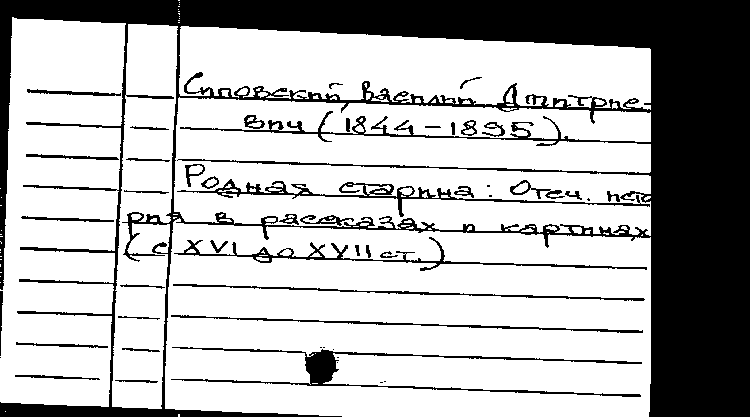 Сиповский, Василий Дмитрие-
вич (1844-1895).
Родная старина: Отеч. исто
рия в рассказах и картинах
(с XVI до XVII ст.)